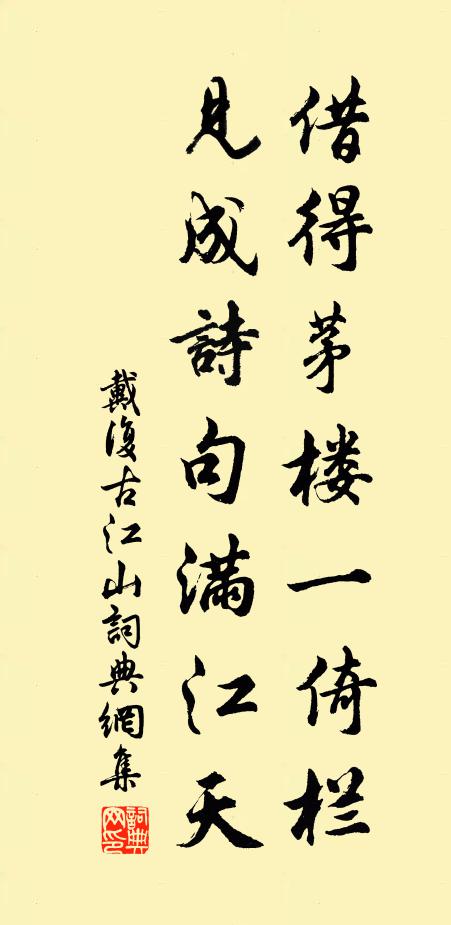 借得茅楼一倚栏
见成詩句满江天
戴復古江山詞典網集
詞典网印